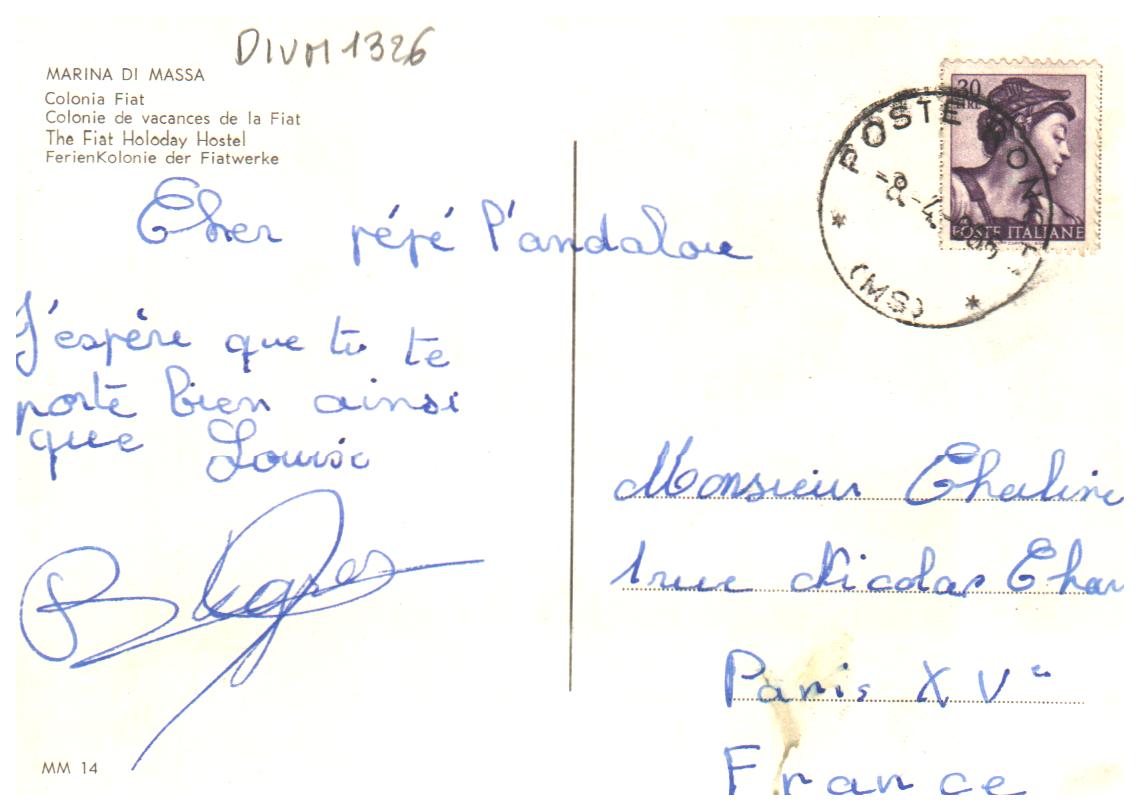 DIVM1326
MARINA DI MASSA
Colonia Fiat
Colonie de vacances de la Fiat
The Fiat Holoday Hostel
FerienKolonie der Fiatwerke
Cher pépé l'andalou
J'espère que tu te
porte bien ainsi
que Louise
MM 14
30
LIRE
POSTE ITALIANE
POSTE
-8-4-
(MS)
Monsieur Chaline
1 rue Nicolas Char
Paris XVe
France